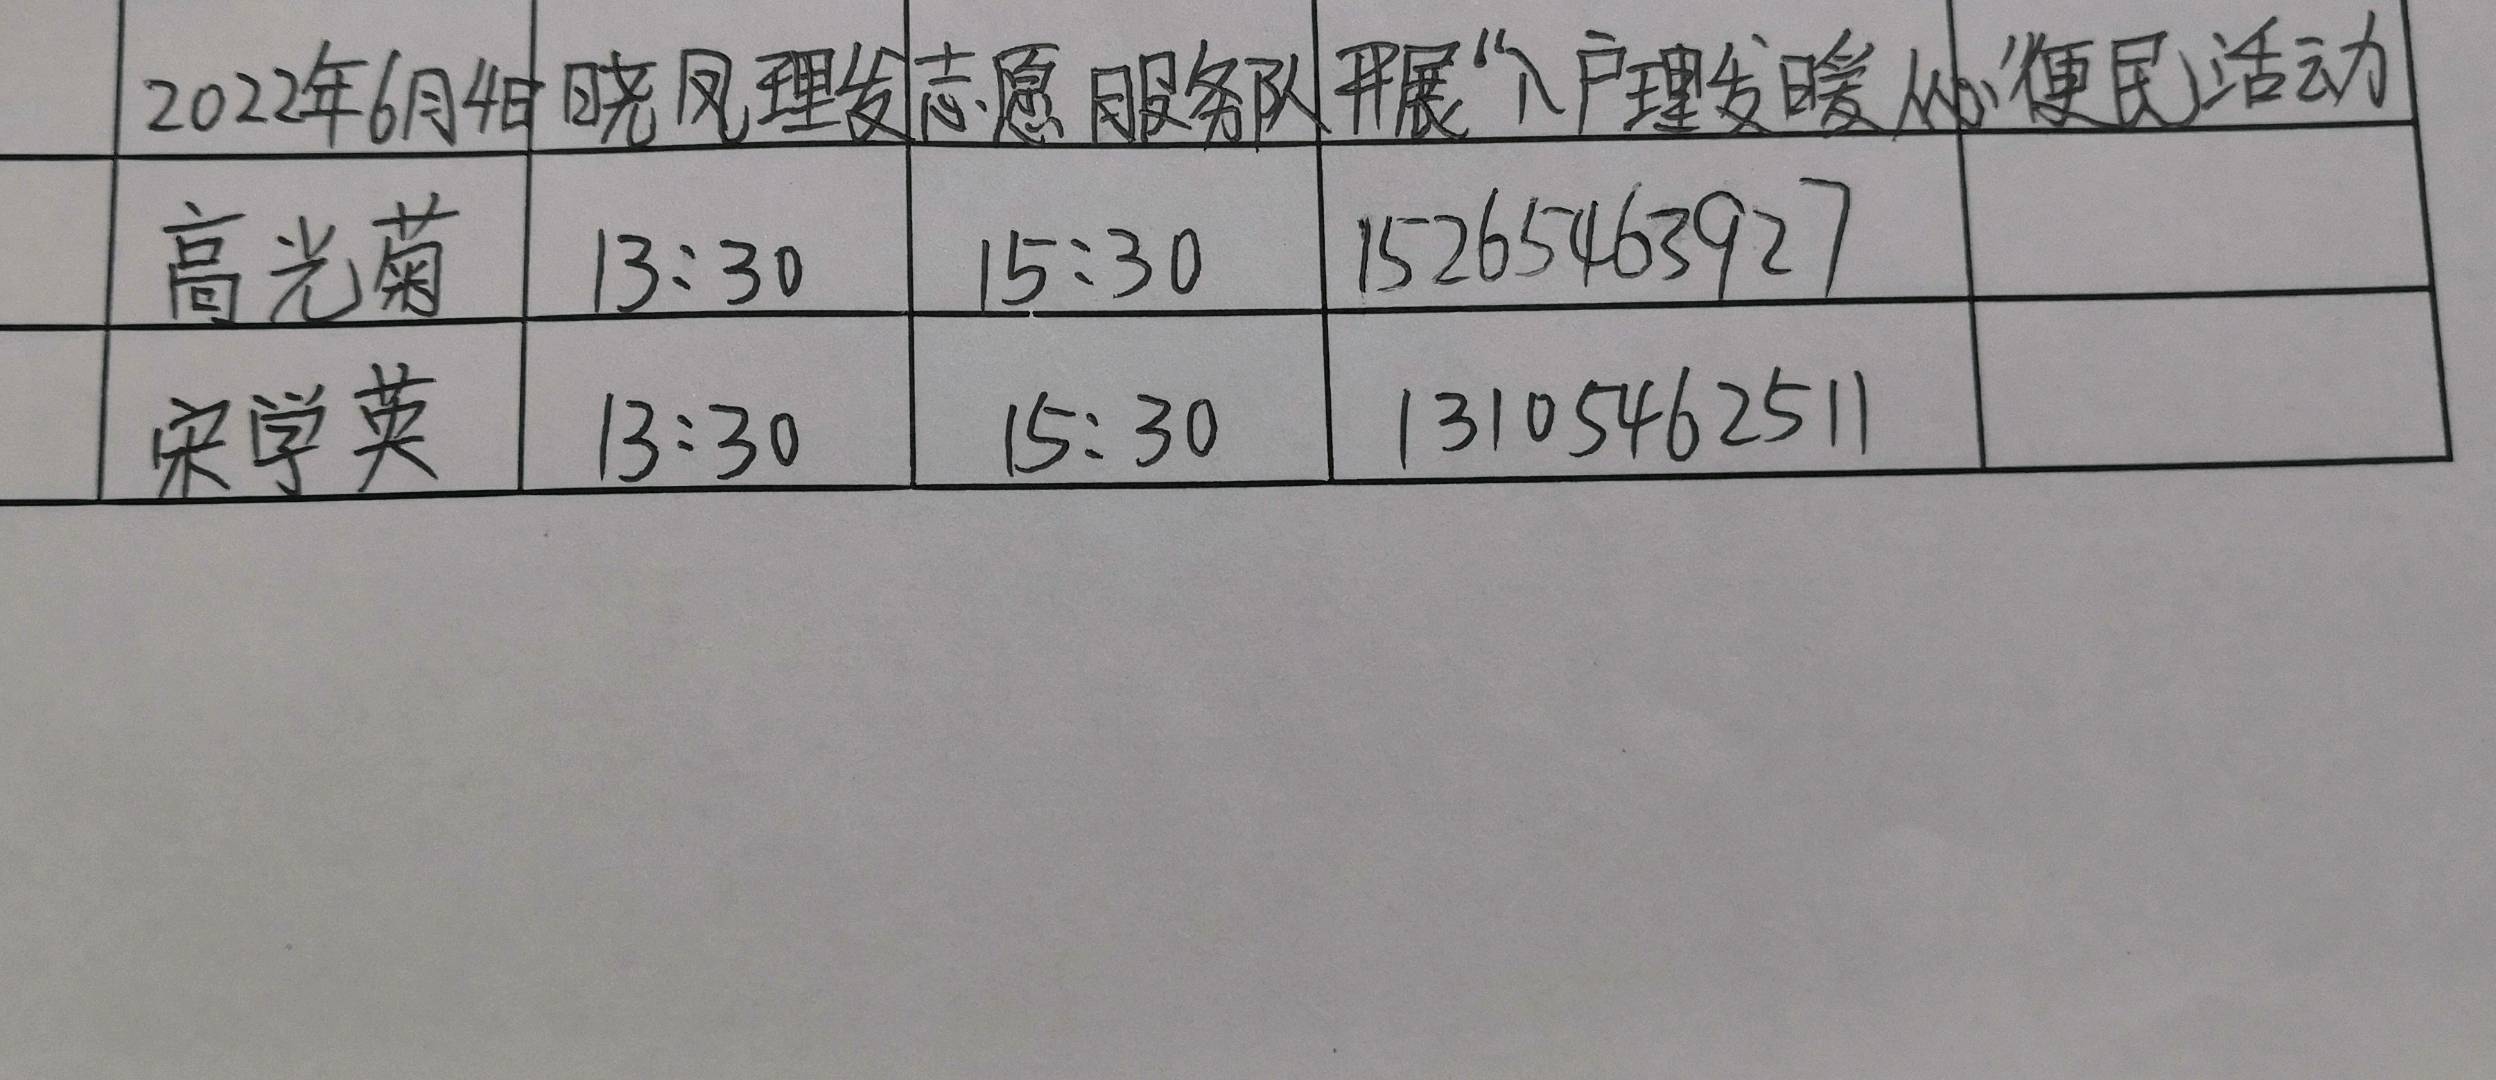 2022年6月4日晓凤理发志愿服务队开展“入户理发暖人心”便民活动
高光菊 13:30 15:30 15265463927
宋学英 13:30 15:30 13105462511